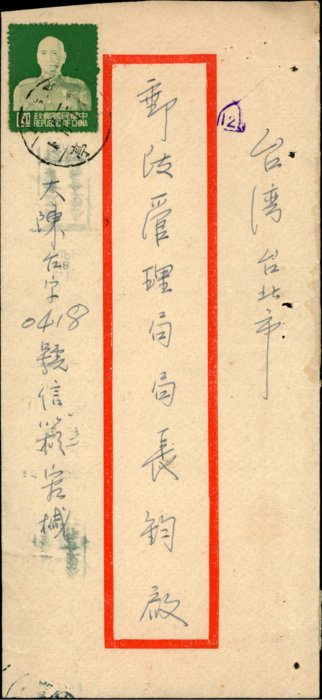 台湾台北市
郵政管理局局長鈞啟
大陳台字0418號信箱宕椷
中華民國郵政
REPUBLIC OF CHINA
12